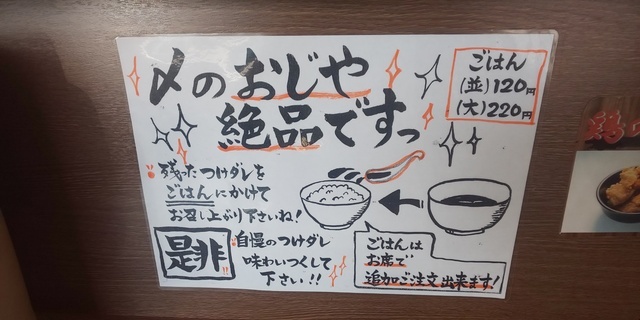 〆のおじや
絶品ですっ
ごはん
(並)120円
(大)220円
残ったつけダレを
ごはんにかけて
お召し上がり下さいね!
是非!!
自慢のつけダレ
味わいつくして
下さい!!
ごはんは
お席で
追加ご注文出来ます!